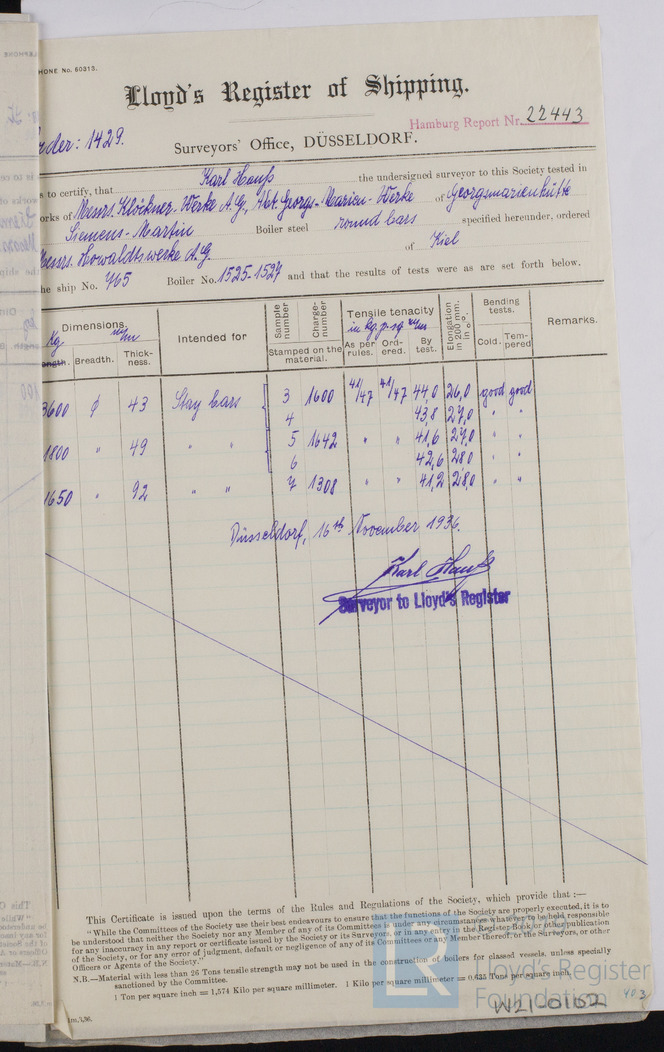 HONE No. 60313.
Lloyd's Register of Shipping.
Hamburg Report Nr. 22443
rder: 1429.
Surveyors' Office, DÜSSELDORF.
s to certify, that Karl Hauß the undersigned surveyor to this Society tested in
orks of Messrs. Klöckner-Werke A.G., Abt. Georgs-Marien-Werke of Georgsmarienhütte
Siemens-Martin Boiler steel round bars specified hereunder, ordered
Messrs. Howaldtswerke A.G. of Kiel
he ship No. 765 Boiler No. 1525-1527 and that the results of tests were as are set forth below.
Dimensions. Kg m/m
ength. Breadth. Thick-ness.
Intended for
Sample number Charge-number
Stamped on the material.
Tensile tenacity in kg. p. sq. m/m
As per rules. Ord-ered. By test.
Elongation in 200 mm. in o/o.
Bending tests.
Cold. Tem-pered
Remarks.
3600 ϕ 43 Stay bars 3 1600 41/47 41/47 44,0 26,0 good good
4 43,8 27,0 " "
1800 " 49 " " 5 1642 " " 41,6 27,0 " "
6 42,6 28,0 " "
1650 " 92 " " 7 1308 " " 41,2 28,0 " "
Düsseldorf, 16th November 1936.
Karl Hauß
Surveyor to Lloyd's Register
This Certificate is issued upon the terms of the Rules and Regulations of the Society, which provide that :—
"While the Committees of the Society use their best endeavours to ensure that the functions of the Society are properly executed, it is to
be understood that neither the Society nor any Member of any of its Committees is under any circumstances whatever to be held responsible
for any inaccuracy in any report or certificate issued by the Society or its Surveyors, or in any entry in the Register Book or other publication
of the Society, or for any error of judgment, default or negligence of any of its Committees or any Member thereof, or the Surveyors, or other
Officers or Agents of the Society."
N.B.—Material with less than 26 Tons tensile strength may not be used in the construction of boilers for classed vessels, unless specially
sanctioned by the Committee.
1 Ton per square inch = 1,574 Kilo per square millimetre. 1 Kilo per square millimetre = 0.635 Tons per square inch.
Lloyd's Register
Foundation
W21-0102
403
1m.3,36.